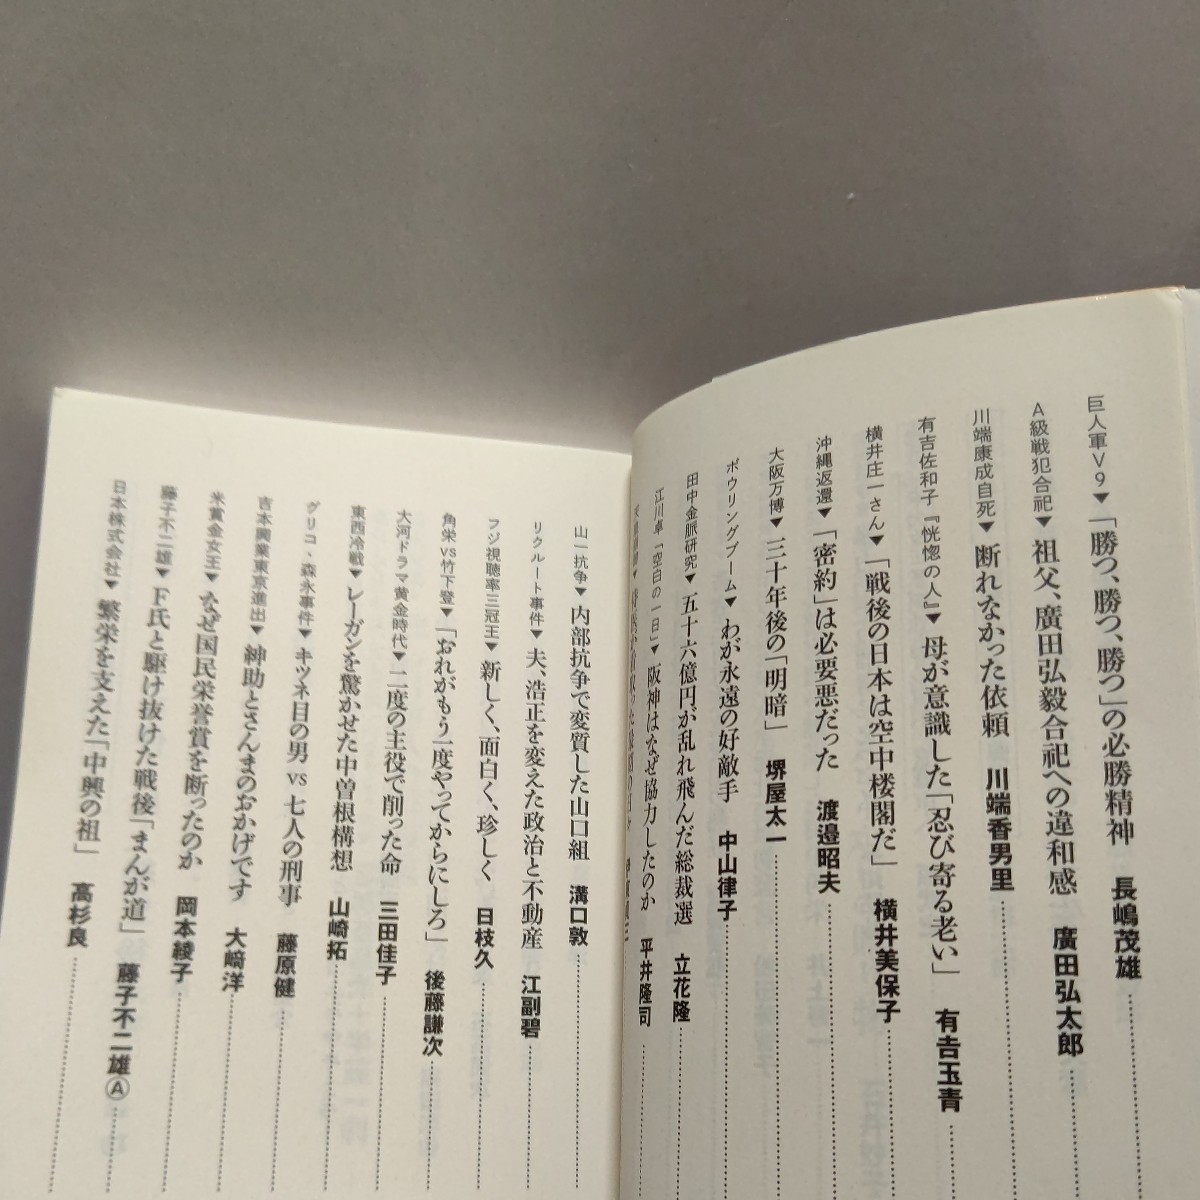 巨人軍V9▼「勝つ、勝つ、勝つ」の必勝精神 長嶋茂雄
A級戦犯合祀▼祖父、廣田弘毅合祀への違和感 廣田弘太郎
川端康成自死▼断れなかった依頼 川端香男里
有吉佐和子『恍惚の人』▼母が意識した「忍び寄る老い」 有吉玉青
横井庄一さん▼「戦後の日本は空中楼閣だ」 横井美保子
沖縄返還▼「密約」は必要悪だった 渡邉昭夫
大阪万博▼三十年後の「明暗」 堺屋太一
ボウリングブーム▼わが永遠の好敵手 中山律子
田中金脈研究▼五十六億円が乱れ飛んだ総裁選 立花隆
江川卓「空白の一日」▼阪神はなぜ協力したのか 平井隆司
山一抗争▼内部抗争で変質した山口組 溝口敦
リクルート事件▼夫、浩正を変えた政治と不動産 江副碧
フジ視聴率三冠王▼新しく、面白く、珍しく 日枝久
角栄vs竹下登▼「おれがもう一度やってからにしろ」 後藤謙次
大河ドラマ黄金時代▼二度の主役で削った命 三田佳子
東西冷戦▼レーガンを驚かせた中曽根構想 山崎拓
グリコ・森永事件▼キツネ目の男vs七人の刑事 藤原健
吉本興業東京進出▼紳助とさんまのおかげです 大﨑洋
米賞金女王▼なぜ国民栄誉賞を断ったのか 岡本綾子
藤子不二雄▼F氏と駆け抜けた戦後「まんが道」 藤子不二雄Ⓐ
日本株式会社▼繁栄を支えた「中興の祖」 高杉良